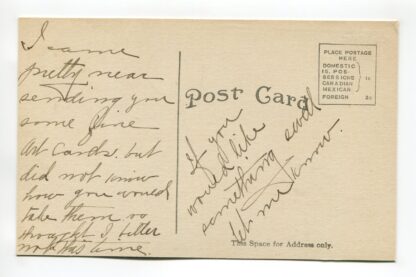 I came
pretty near
sending you
some fine
Art Cards. but
did not know
how you would
take them so
thought I better
not this time.
Post Card
PLACE POSTAGE
HERE
DOMESTIC
IS. POS-
SESSIONS
CANADIAN
MEXICAN
1c
FOREIGN 2c
If you
would like
something swell
let me know.
This Space for Address only.